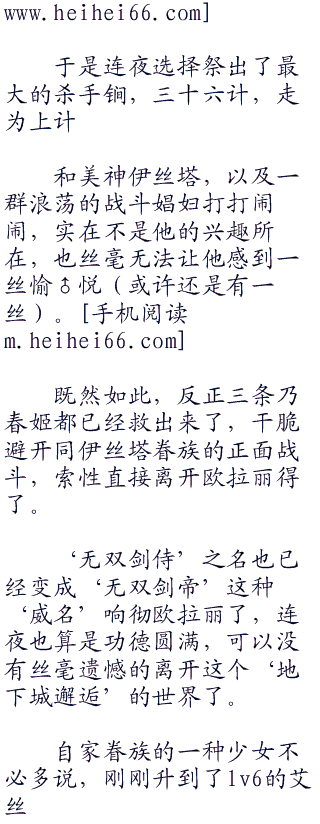 www.heihei66.com]
于是连夜选择祭出了最
大的杀手锏，三十六计，走
为上计
和美神伊丝塔，以及一
群浪荡的战斗娼妇打打闹
闹，实在不是他的兴趣所
在，也丝毫无法让他感到一
丝愉♂悦（或许还是有一
丝）。[手机阅读
m.heihei66.com]
既然如此，反正三条乃
春姬都已经救出来了，干脆
避开同伊丝塔眷族的正面战
斗，索性直接离开欧拉丽得
了。
‘无双剑侍’之名也已
经变成‘无双剑帝’这种
‘威名’响彻欧拉丽了，连
夜也算是功德圆满，可以没
有丝毫遗憾的离开这个‘地
下城邂逅’的世界了。
自家眷族的一种少女不
必多说，刚刚升到了lv6的艾
丝